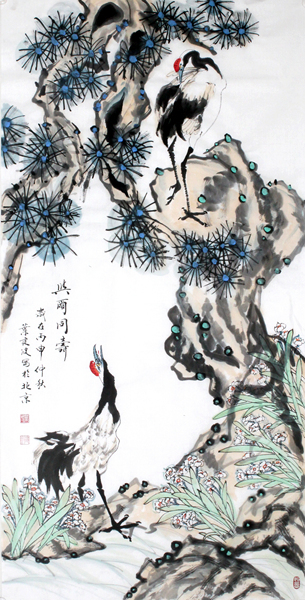 與爾同壽
歲在丙申仲秋
葉寫於北京